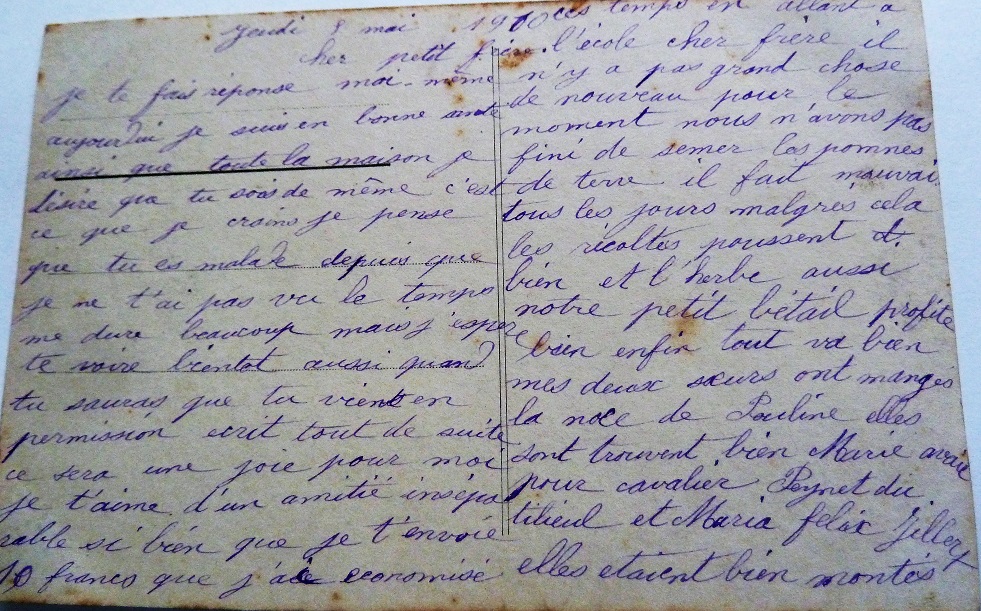 Jeudi 8 mai 1910
cher petit frère.
je te fais réponse moi-même
aujourdui je suis en bonne santé
ainsi que toute la maison je
désire que tu sois de même c'est
ce que je crains je pense
que tu es malade depuis que
je ne t'ai pas vu le temps
me dure beaucoup mais j'espere
te voire bientot aussi quand
tu sauras que tu vient en
permission ecrit tout de suite
ce sera une joie pour moi
je t'aime d'un amitié insépa
rable si bien que je t'envoie
10 francs que j'ai economisé
ces temps en allant a
l'école cher frère il
n'y a pas grand chose
de nouveau pour le
moment nous n'avons pas
fini de semer les pommes
de terre il fait mauvai
tous les jours malgrés cela
les récoltes poussent
bien et l'herbe aussi
notre petit bétail profite
bien enfin tout va bien
mes deux sœurs ont mangés
la noce de Pauline elles
sont trouvent bien Marie avait
pour cavalier Peynet du
tilieul et Maria felix Gillery
elles etaient bien montés